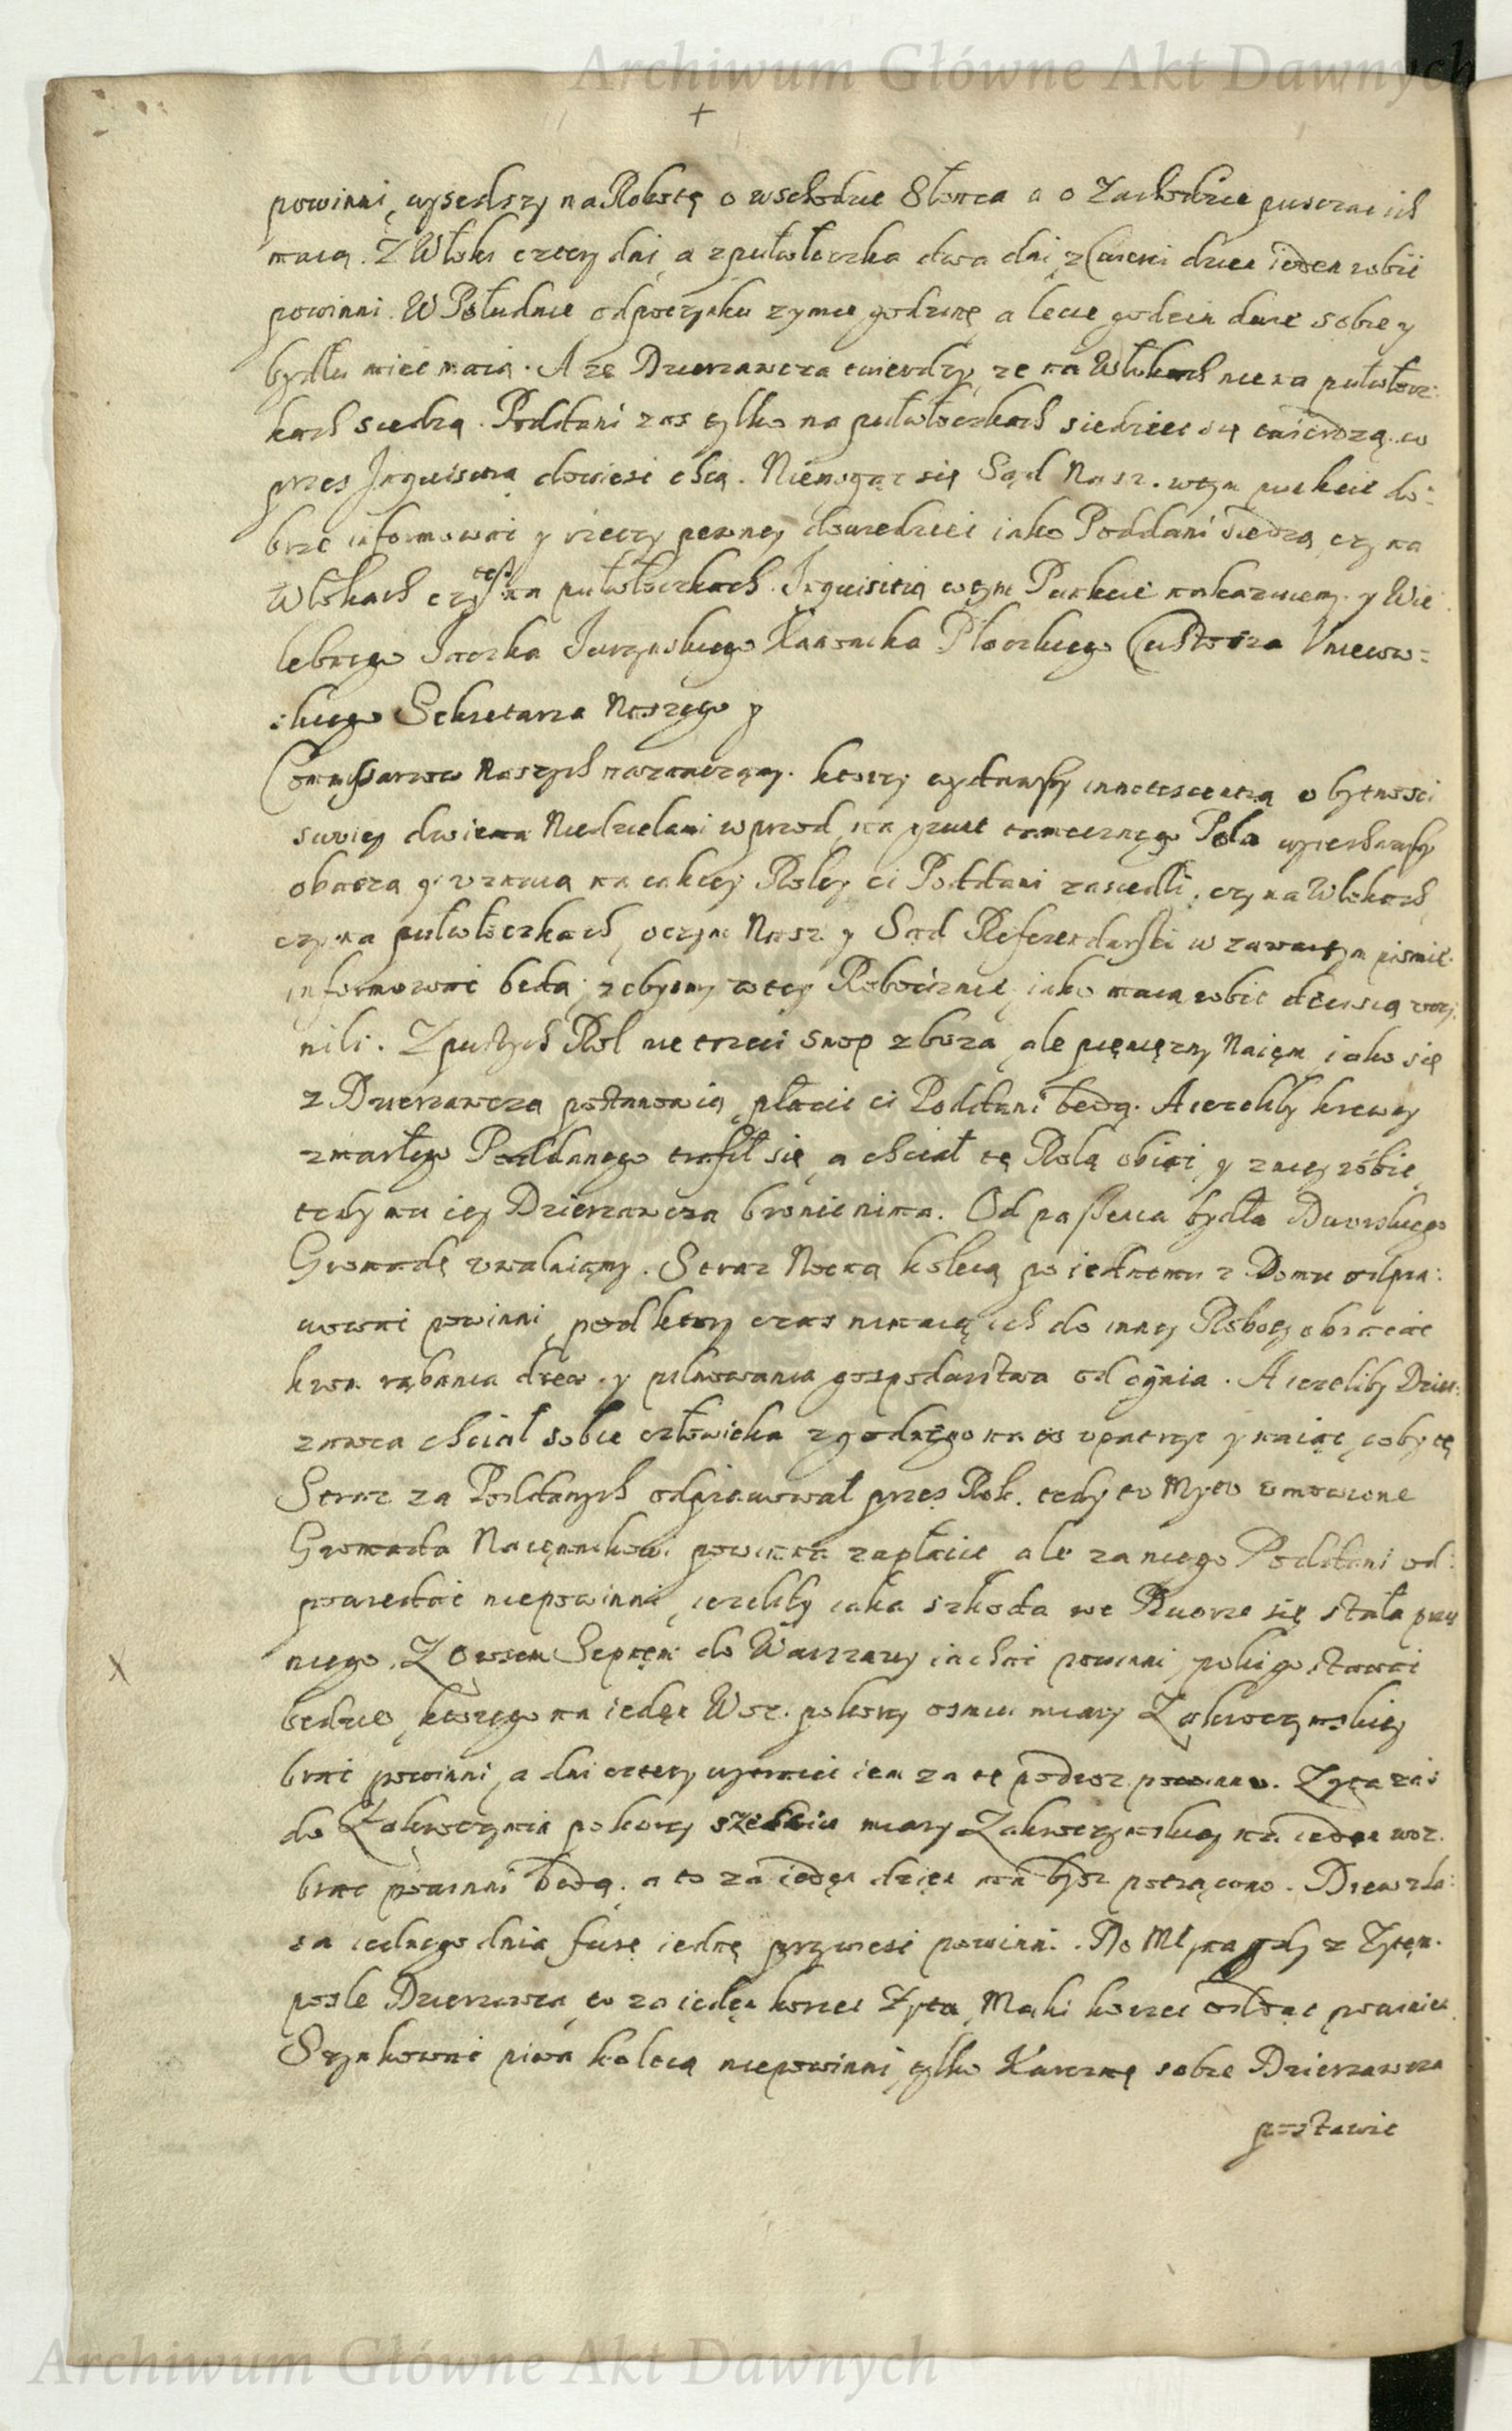 Archiwum Główne Akt Dawnych
+
powinni, wyszedszy na Robotę o wschodzie Słonca a o Zachodzie puszczac ich
maią. Z Włoki cztery dni, a z pułwłoczka dwa dni, z Cwierci dzien ieden robić
powinni. W Południe odpoczynku zymie godzinę a lecie godzin dwie sobie y
bydłu mieć maią. A ze Dzierzawcza twierdzi, ze na Włokach nie na pułwłocz:
kach siedzą. Poddani zas tylko na pułwłoczkach siedziec się twierdzą. co
przes Inquisitią dowiesć chcą. Niemogąc się Sąd Nasz. wtym punkcie do:
brze informowac y rzeczy pewney dowiedzieć iako Poddani siedzą, czy na
Włokach czy tesz na pułwłoczkach. Inquisitią wtym Punkcie nakazuiemy. y Wie
lebnego Jacka Jurzynskiego Kanonika Płockiego Custosza Uniewo=
:skiego Sekretarza Naszego y
Commissarzow Naszych naznaczamy. ktorzy wydawszy innotescentią o bytnosci
swoiey dwiema Niedzielami wprzod, na grunt tamecznego Pola wyiechawszy
obaczą y uznaią na iakiey Roley ci Poddani zasiedli, czy na Włokach,
czy na pułwłoczkach, oczym Nasz y Sąd Referendarski w zawartym pismie
informowac będą, zebysmy wtey Robociznie, iako maią robic decisią uczy:
nili. Z pustych Rol nie trzeci snop zboza, ale pięnięzny Naięm iako się
z Dzierzawczą postanowią, płacic ci Poddani będą. A iezeliby krewny
zmarłego Poddanego trafił się, a chciał tę Rolą obiąć, y z niey robic
tedy mu iey Dzierzawcza bronic nima. Od pasienia bydła Dworskiego
Gromadę uwalniamy. Straz Nocną koleią po iednemu z Domu odpra:
wowac powinni, pod ktory czas nimaią ich do inney Roboty obracac
krom rąbania drew. y pilnowania gospodarstwa od ognia. A iezeliby Dzier:
zawca chciał sobie człowieka zgodnego na to upatrzyc y naiąć, coby tę
Straz za Poddanych odprawował przes Rok. tedy to Myto umowione
Gromada Naięmnikowi powinna zapłacic ale za niego Poddani od:
powiedac niepowinni, iezeliby iaka szkoda we Dworze się stała przy
niego. Z Owsem Sepnęm do Warszawy iachac powinni, poki go stawac
X
będzie, ktorego na ieden Woz. po korcy osmiu miary Zakroczymskiey
brac powinni, a dni cztery wytrącic im za tę podroz powinno. Zyta zas
do Zakroczymia po korcy szesciu miary Zakroczymskiey na ieden woz.
brac powinni będą. a to za ieden dzien ma bydz potrącono. Drew z la:
sa iednego dnia furę iednę przywiesc powinni. Do Młyna gdy z Zytęm.
posle Dzierzawca, to za ieden korzec Zyta, Mąki korzec oddac powinien.
Szynkowac piwa koleią niepowinni, tylko Karczmę sobie Dzierzawcza
postawic
Archiwum Główne Akt Dawnych